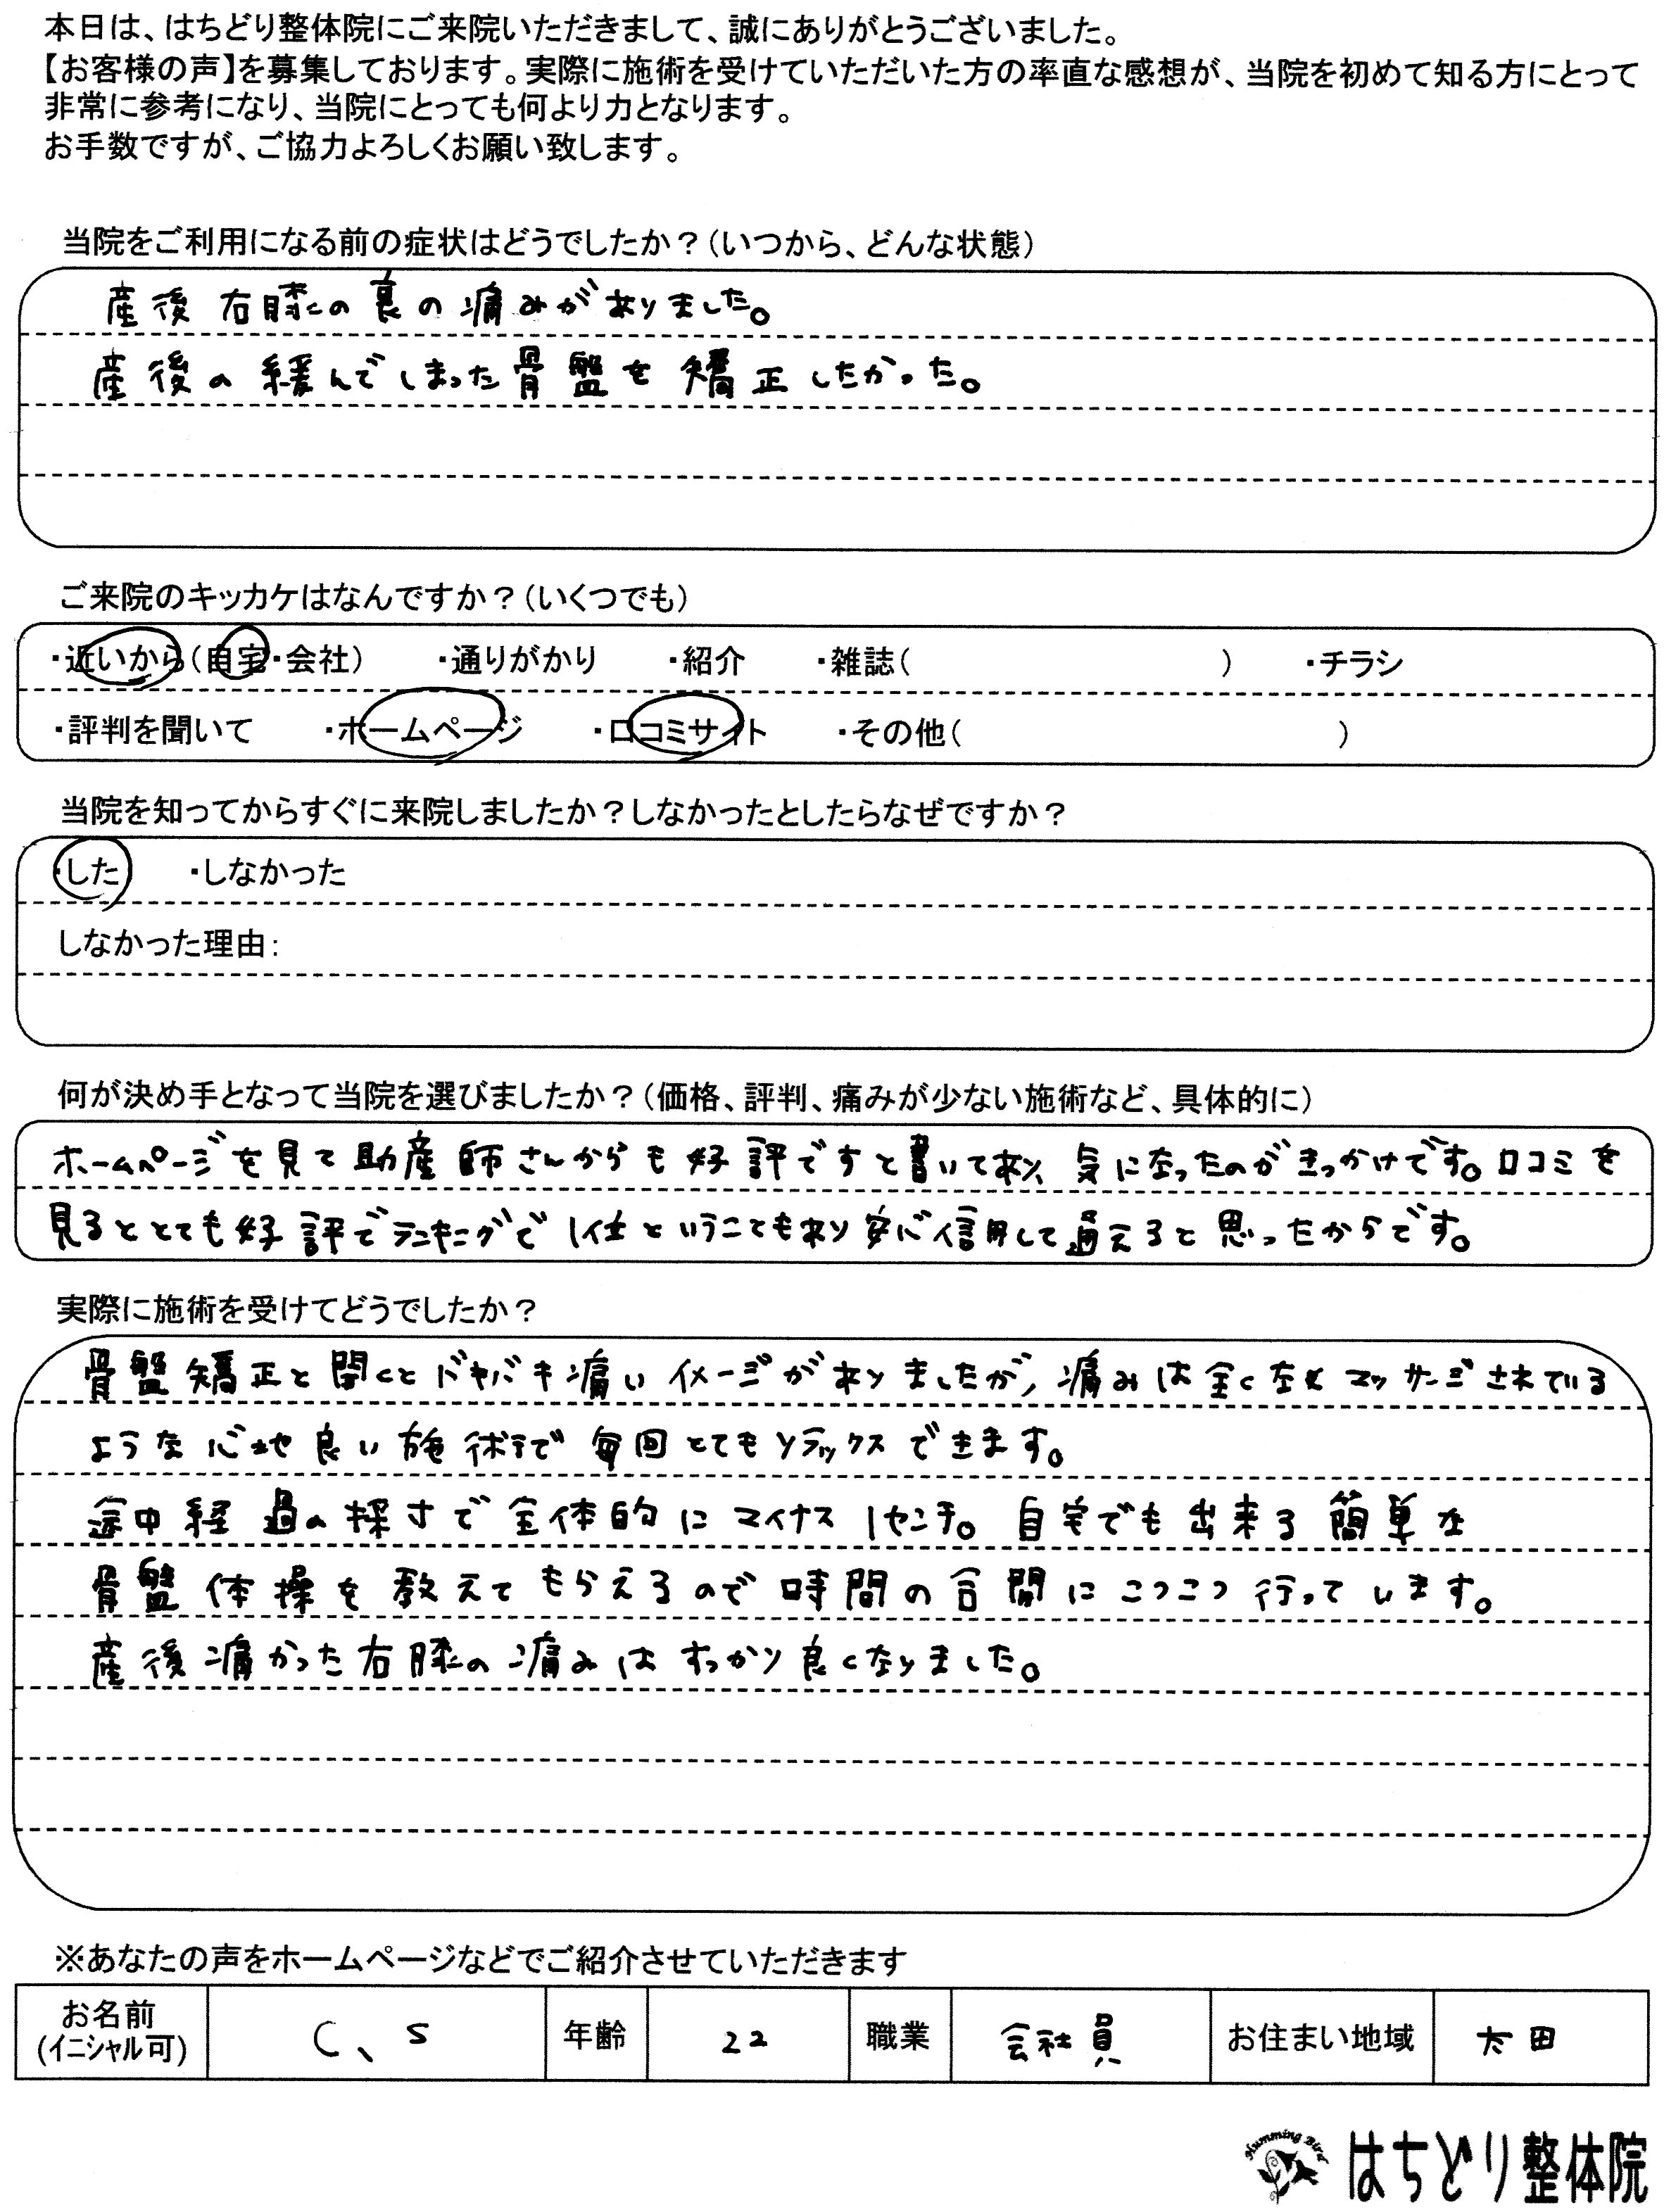 本日は、はちどり整体院にご来院いただきまして、誠にありがとうございました。
【お客様の声】を募集しております。実際に施術を受けていただいた方の率直な感想が、当院を初めて知る方にとって
非常に参考になり、当院にとっても何より力となります。
お手数ですが、ご協力よろしくお願い致します。
当院をご利用になる前の症状はどうでしたか？（いつから、どんな状態）
産後右膝の裏の痛みがありました。
産後の緩んでしまった骨盤を矯正したかった。
ご来院のキッカケはなんですか？（いくつでも）
・近いから（自宅・会社） ・通りがかり ・紹介 ・雑誌（ ） ・チラシ
・評判を聞いて ・ホームページ ・口コミサイト ・その他（ ）
当院を知ってからすぐに来院しましたか？しなかったとしたらなぜですか？
・した ・しなかった
しなかった理由：
何が決め手となって当院を選びましたか？（価格、評判、痛みが少ない施術など、具体的に）
ホームページを見て助産師さんからも好評ですと書いてあり、気になったのがきっかけです。口コミを
見るととても好評でランキングで1位ということもあり安心信用して通えると思ったからです。
実際に施術を受けてどうでしたか？
骨盤矯正と聞くとバキバキ痛いイメージがありましたが、痛みは全くなくマッサージされている
ような心地良い施術で毎回とてもリラックスできます。
途中経過の採寸で全体的にマイナス1センチ。自宅でも出来る簡単な
骨盤体操を教えてもらえるので時間の合間にこつこつ行っています。
産後痛かった右膝の痛みはすっかり良くなりました。
※あなたの声をホームページなどでご紹介させていただきます
お名前 (イニシャル可) C、S 年齢 22 職業 会社員 お住まい地域 太田
Humming Bird はちどり整体院